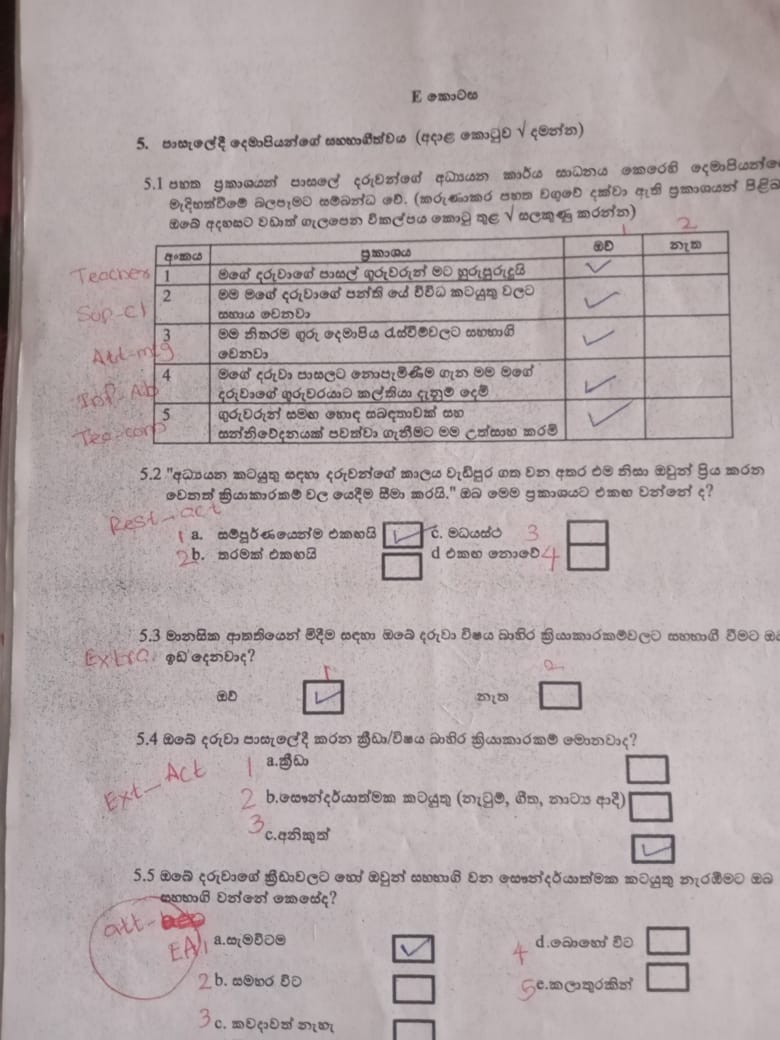 E කොටස
5. පාසැලේදී දෙමාපියන්ගේ සහභාගීත්වය (අදාළ කොටුව √ දමන්න)
5.1 පහත ප්‍රකාශයන් පාසලේ දරුවන්ගේ අධ්‍යයන කාර්ය සාධනය කෙරෙහි දෙමාපියන්ගේ
මැදිහත්වීමේ බලපෑමට සම්බන්ධ වේ. (කරුණාකර පහත වගුවේ දක්වා ඇති ප්‍රකාශයන් පිළිබ
ඔබේ අදහසට වඩාත් ගැලපෙන විකල්පය කොටු තුළ √ සලකුණු කරන්න)
1 2
අංකය ප්‍රකාශය ඔව් නැත
Teacher 1 මගේ දරුවාගේ පාසල් ගුරුවරුන් මට හුරුපුරුදුයි ✓
Sup-cl 2 මම මගේ දරුවාගේ පන්ති යේ විවිධ කටයුතු වලට ✓
සහාය වෙනවා
Att-mtg 3 මම නිතරම ගුරු දෙමාපිය රැස්වීම්වලට සහභාගී ✓
වෙනවා
Inf-Ab 4 මගේ දරුවා පාසලට නොපැමිණීම ගැන මම මගේ ✓
දරුවාගේ ගුරුවරයාට කල්තියා දැනුම් දෙමි
5 ගුරුවරුන් සමඟ හොඳ සබඳතාවක් සහ ✓
සන්නිවේදනයක් පවත්වා ගැනීමට මම උත්සාහ කරමි
5.2 "අධ්‍යයන කටයුතු සඳහා දරුවන්ගේ කාලය වැඩිපුර ගත වන අතර එම නිසා ඔවුන් ප්‍රිය කරන
වෙනත් ක්‍රියාකාරකම් වල යෙදීම සීමා කරයි." ඔබ මෙම ප්‍රකාශයට එකඟ වන්නේ ද?
Rest-act
1 a. සම්පූර්ණයෙන්ම එකඟයි ✓ c. මධ්‍යස්ථ 3
2 b. තරමක් එකඟයි d එකඟ නොවේ 4
5.3 මානසික ආතතියෙන් මිදීම සඳහා ඔබේ දරුවා විෂය බාහිර ක්‍රියාකාරකම්වලට සහභාගී වීමට ඔබ
Extra. ඉඩ දෙනවාද?
1 2
ඔව් ✓ නැත
5.4 ඔබේ දරුවා පාසැලේදී කරන ක්‍රීඩා/විෂය බාහිර ක්‍රියාකාරකම් මොනවාද?
Ext-Act 1 a.ක්‍රීඩා
2 b.සෞන්දර්යාත්මක කටයුතු (නැටුම්, ගීත, නාට්‍ය ආදී)
3 c.අනිකුත් ✓
5.5 ඔබේ දරුවාගේ ක්‍රීඩාවලට හෝ ඔවුන් සහභාගි වන සෞන්දර්යාත්මක කටයුතු නැරඹීමට ඔබ
සහභාගි වන්නේ කෙසේද?
att-
EA 1 a.සැමවිටම ✓ 4 d.බොහෝ විට
2 b. සමහර විට 5 e.කලාතුරකින්
3 c. කවදාවත් නැහැ